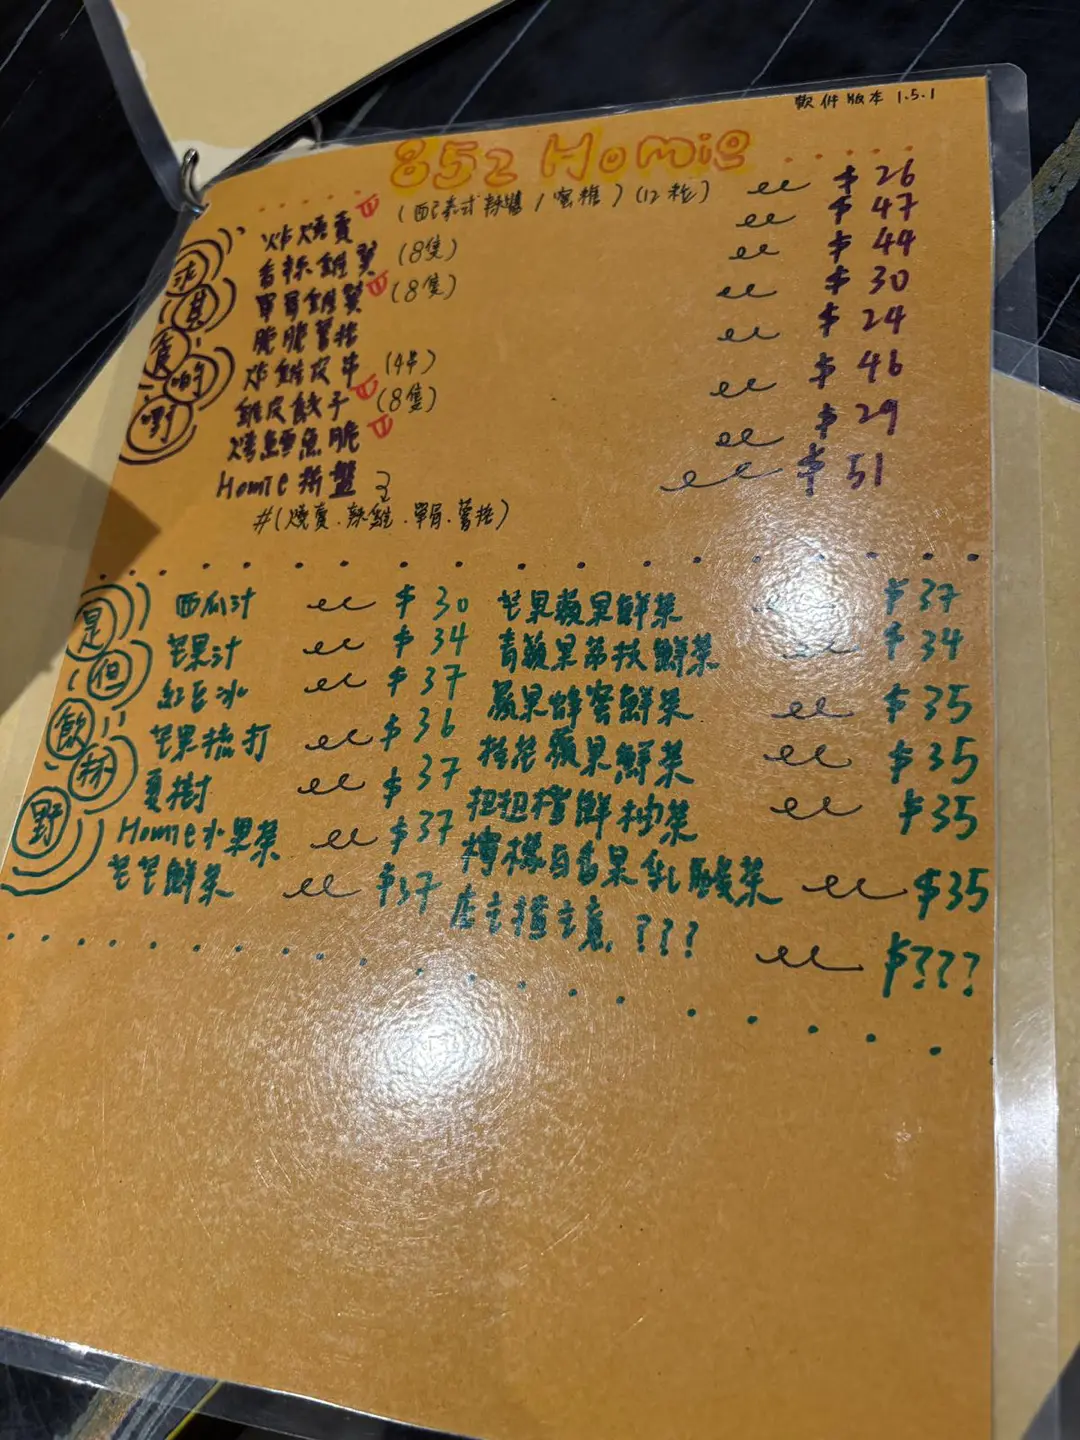 軟件版本 1.5.1
852 Homie
求其食啲嘢
炸燒賣 (配泰式辣醬 / 蜜糖) (12粒) $26
香辣雞翼 (8隻) $47
單骨雞翼 (8隻) $44
脆脆薯格 $30
炸雞皮串 (4串) $24
雞皮餃子 (8隻) $46
烤鱈魚脆 $29
Homie拼盤 $51
#(燒賣.辣雞.單骨.薯格)
是但飲杯野
西瓜汁 $30
芒果汁 $34
紅豆冰 $37
芒果梳打 $36
夏樹 $37
Homie水果茶 $37
芒芒鮮茶 $37
芒果蘋果鮮茶 $37
青蘋果荔枝鮮茶 $34
蘋果蜂蜜鮮茶 $35
桂花蘋果鮮茶 $35
柑桔鮮柚茶 $35
檸檬百香果乳酸茶 $35
店主揸主意 ??? $???